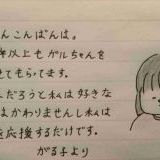 んこんばんは。
以上もゲルちゃんを
せてもらてます。
だろうと私は好きな
はかわりませんし私は
を応援するだけです。
がる子より